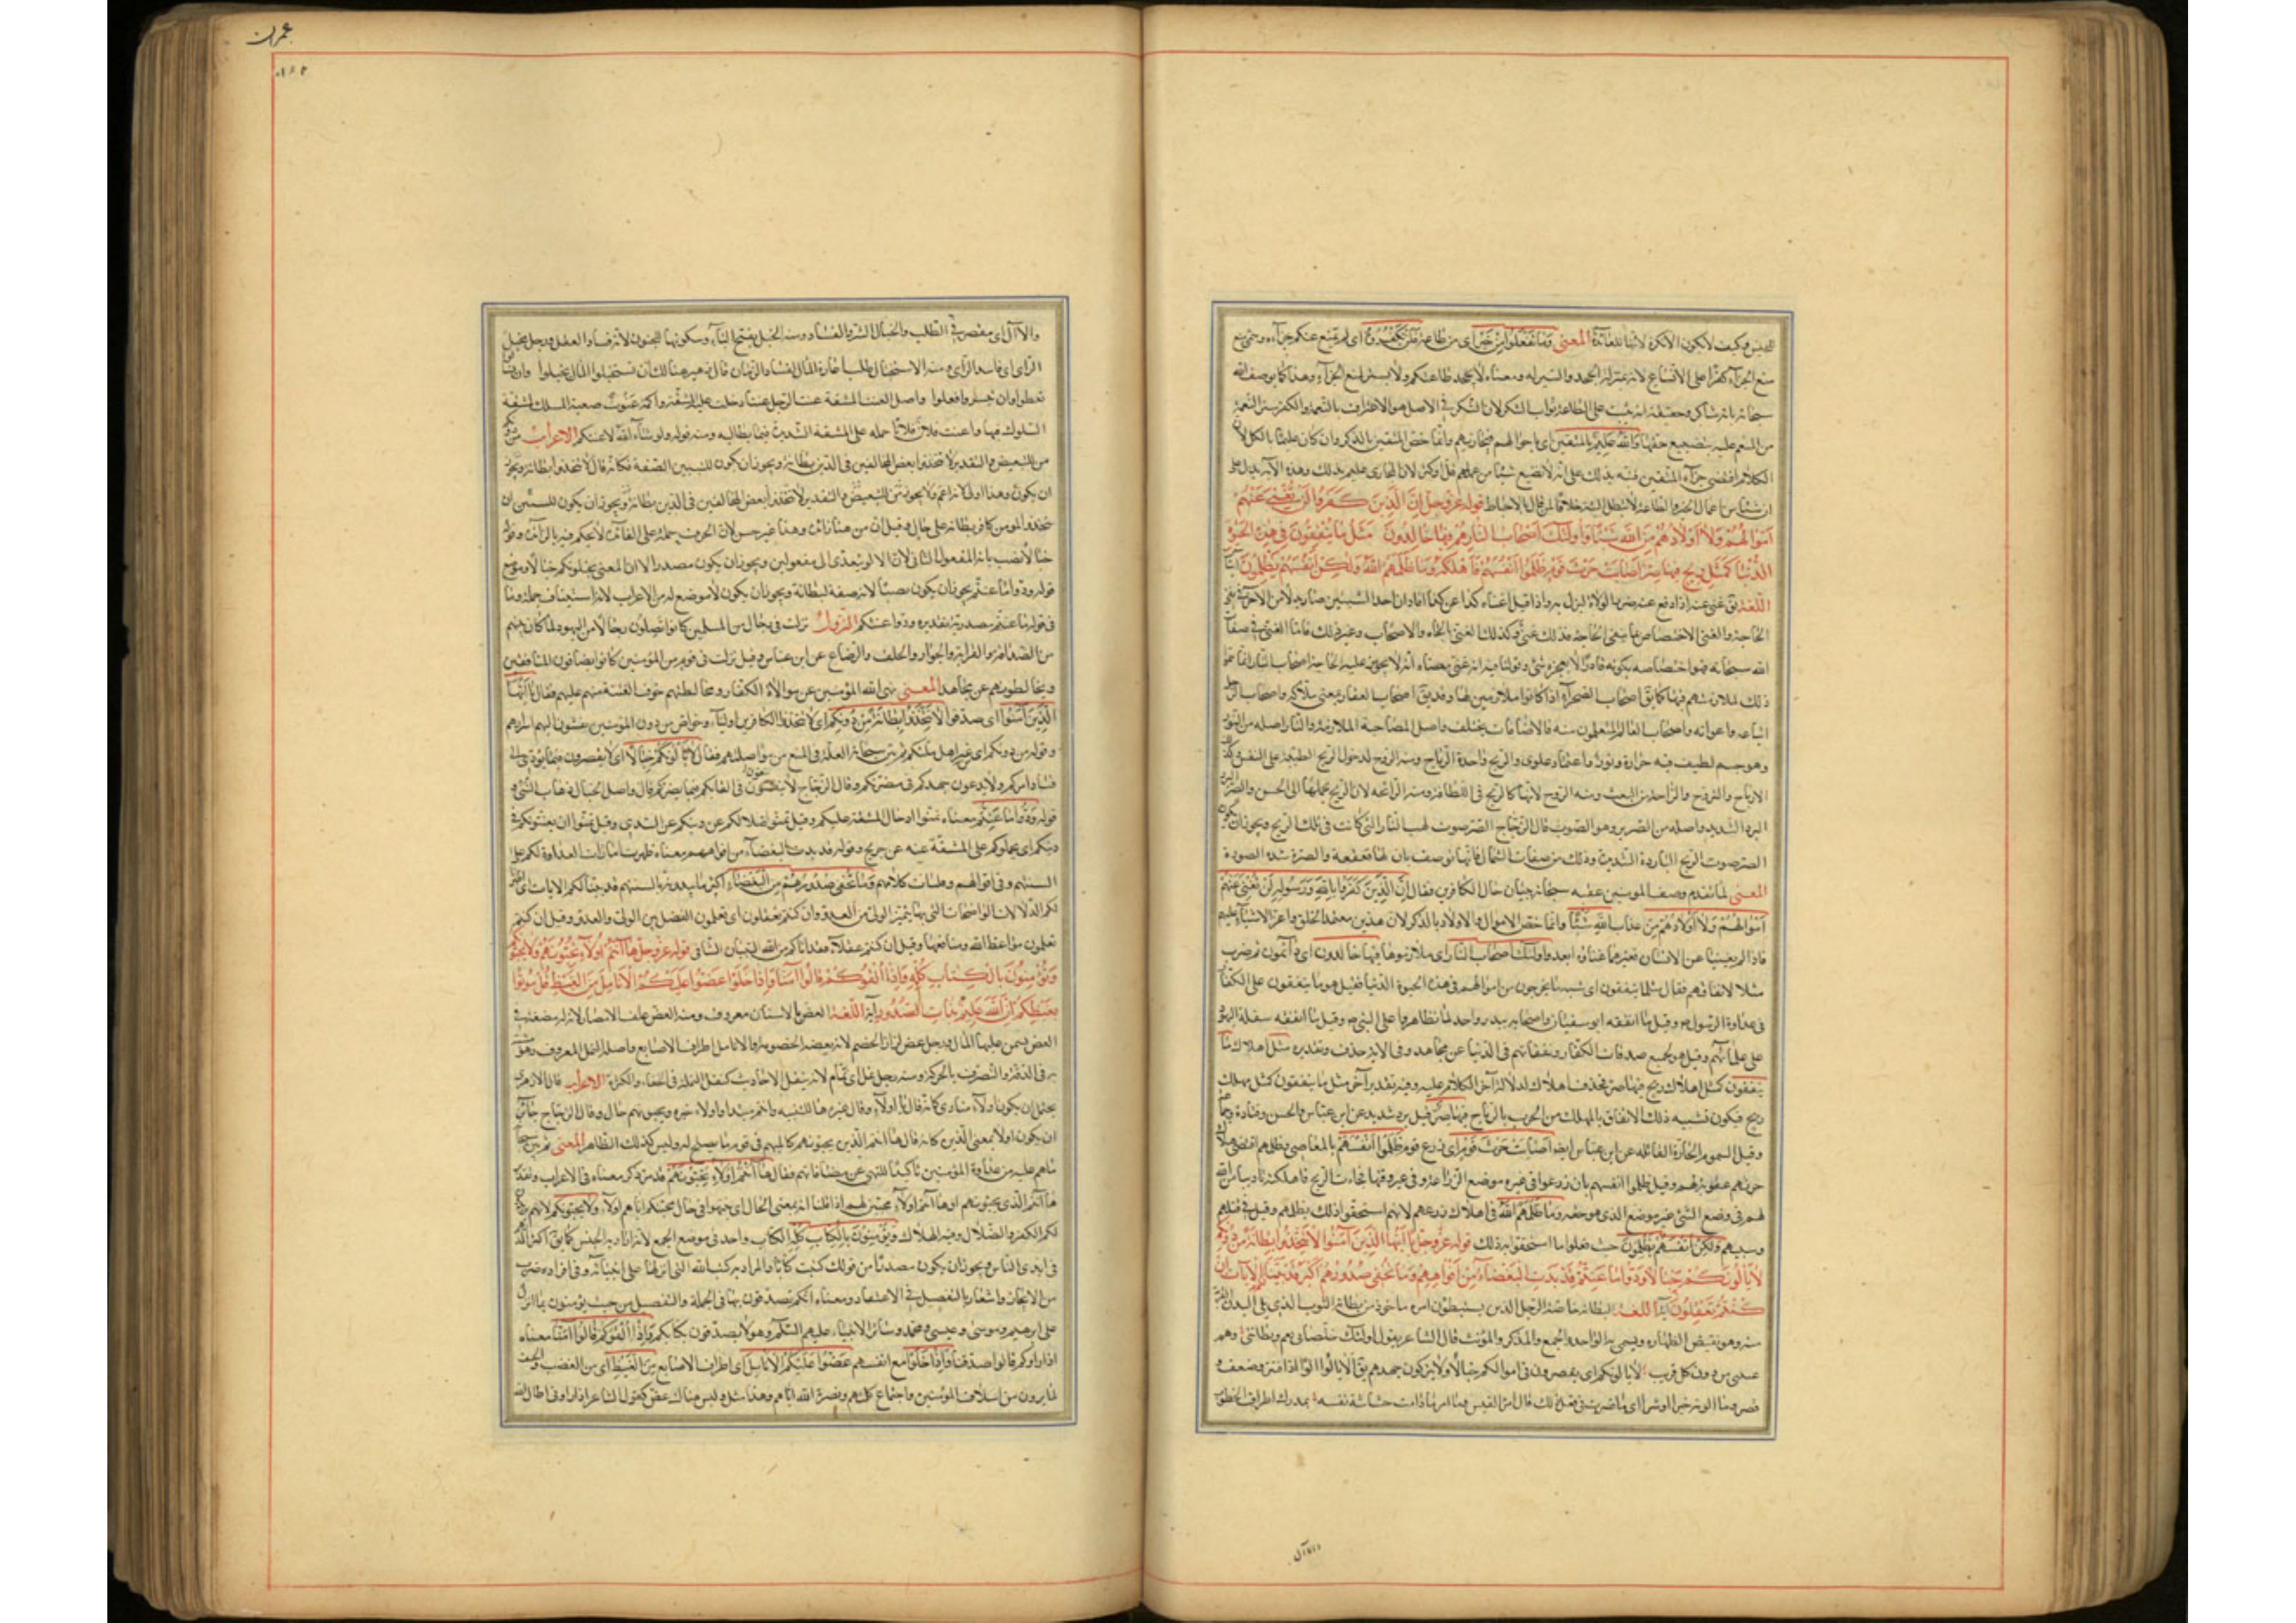 للجنس فكيف لا يكون الا نكرة لانها للغاية المعنى وما تفعلوا من خير اى من طاعة فلن تكفروه اى لم يمنع عنكم جزاءه وسمى منع
منع الجزاء كفرا على الاتساع لانه بمنزلة الجحد والستر له ومعناه لا يجحد طاعتكم ولا يستر بمنع الجزاء وهذا كما يوصف الله
سبحانه بانه شاكر وحقيقته انه يثيب على الطاعة ثواب الشكر لان الشكر فى الاصل هو الاعتراف بالنعمة والكفر ستر النعمة
من المنعم عليه بتضييع حقها والله عليم بالمتقين اى باحوالهم فيجازيهم وانما خص المتقين بالذكر وان كان عليما بالكل لان
الكلام اقتضى جزاء المتقين فنبه بذلك على انه لا يضيع شيئا من عملهم قل او كثر لان المجازى عليم بذلك وهذه الآية تدل على
ان شيئا من اعمال الخير والطاعة لا يبطل البتة خلافا لمن قال بالاحباط قوله عز وجل ان الذين كفروا لن تغنى عنهم
اموالهم ولا اولادهم من الله شيئا واولئك اصحاب النار هم فيها خالدون مثل ما ينفقون فى هذه الحيوة
الدنيا كمثل ريح فيها صر اصابت حرث قوم ظلموا انفسهم فاهلكته وما ظلمهم الله ولكن انفسهم يظلمون آيتان
اللغة يق غنى عنه اذا دفع عنه ضررا لولاه لنزل به واذا قيل اغناه كذا عن كذا افاد ان احد الشيئين صار بدلا من الآخر فى نفى
الحاجة والغنى الاختصاص بما ينفى الحاجة فذلك غنى وكذلك الغنى بالجاه والاصحاب وغير ذلك فاما الغنى فى صفات
الله سبحانه فهو اختصاصه بكونه قادرا لا يعجزه شئ وقولنا فيه انه غنى معناه انه لا يجوز عليه الحاجة اصحاب النار انما هو
ذلك لملازمتهم فيها كما يق اصحاب الصحراء اذا كانوا ملازمين لها وقد يق اصحاب العقار بمعنى ملاكه واصحاب الرجل
اتباعه واعوانه واصحاب العالم المتعلمون منه فالاضافات يختلف واصل المصاحبة الملازمة والنار اصله من النور
وهو جسم لطيف فيه حرارة ونور واعتماد علوى والريح واحدة الرياح ومنه الروح لدخول الريح الطيبة على النفس وكذلك
الارتياح والتروح والراحة من التعب ومنه الروح لانها كالريح فى اللطافة ومنه الرائحة لان الريح يحملها الى الحس والصر
البرد الشديد واصله من الصرير وهو الصوت قال الزجاج الصر صوت لهب النار التى كانت فى تلك الريح ويجوز ان يكون
الصر صوت الريح الباردة الشديدة وذلك من صفات الشمال فانها توصف بان لها قعقعة والصرة شدة الصوت
المعنى لما تقدم وصف المومنين عقبه سبحانه ببيان حال الكافرين فقال ان الذين كفروا بالله ورسوله لن تغنى عنهم
اموالهم ولا اولادهم من عذاب الله شيئا وانما خص الاموال والاولاد بالذكر لان هذين معتمد الخلق واعز الاشياء عليهم
فاذا لم يغنيا عن الانسان فغيرهما غناؤه ابعد واولئك اصحاب النار اى ملازموها فيها خالدون اى دائمون ثم ضرب
مثلا لانفاقهم فقال مثل ما ينفقون اى شبه ما يخرجون من اموالهم فى هذه الحيوة الدنيا فقيل هو ما ينفقون على الكفار
فى عداوة الرسول ص وقيل ما انفقه ابو سفيان واصحابه ببدر واحد لما تظاهروا على النبى ص وقيل ما انفقه سفلة اليهود
على علمائهم وقيل هو جميع صدقات الكفار ونفقاتهم فى الدنيا عن مجاهد وفى الاية حذف وتقديره مثل اهلاك ما
ينفقون كمثل اهلاك ريح فيها صر فحذف اهلاك لدلالة آخر الكلام عليه وفيه تقدير آخر مثل ما ينفقون كمثل مهلك
ريح فيكون تشبيه ذلك الانفاق بالمهلك من الحرث بالرياح فيها صر قيل برد شديد عن ابن عباس والحسن وقتادة وجماعة
وقيل السموم الحارة القاتلة عن ابن عباس ايضا اصابت حرث قوم اى زرع قوم ظلموا انفسهم بالمعاصى وظلمهم اقتضى هلاك
حرثهم عقوبة لهم وقيل ظلموا انفسهم بان زرعوا فى غير موضع الزراعة وفى غير وقتها فجاءت الريح فاهلكته تاديبا من الله
لهم فى وضع الشئ غير موضع الذى هو حقه وما ظلمهم الله فى اهلاك زرعهم لانهم استحقوا ذلك بظلمهم وقيل فى قتلهم
وسبيهم ولكن انفسهم يظلمون حيث فعلوا ما استحقوا به ذلك قوله عز وجل يا ايها الذين آمنوا لا تتخذوا بطانة من دونكم
لا يالونكم خبالا ودوا ما عنتم قد بدت البغضاء من افواههم وما تخفى صدورهم اكبر قد بينا لكم الايات ان
كنتم تعقلون آية اللغة البطانة خاصة الرجل الذين يستبطنون امره ماخوذ من بطانة الثوب الذى يلى البدن لقربه
منه وهو نقيض الظهارة ويسمى به الواحد والجمع والمذكر والمؤنث قال الشاعر يقول اولئك خلصانى نعم وبطانتى وهم
عيبتى من دون كل قريب لا يالونكم اى يقصرون فى اموالكم خبالا ولا يتركون جهدهم يق الا يالو الوا اذا فتر وضعف و
قصر وما الوته خيرا او شرا اى ما قصرت فى فعل ذلك قال امرؤ القيس وما المرء ما دامت حشاشة نفسه بمدرك اطراف الخطوب
والا آل
عمران
والا آل اى مقصر فى الطلب والخبال الشر والفساد ومنه الخبل بفتح الباء وسكونها للجنون لانه فساد العقل ورجل مخبل
الراى اى فاسد الراى ومنه الاستخبال طلب اعارة المال لفساد الزمان قال زهير هنالك ان تستخبلوا المال يخبلوا وان يسالوا
يعطوا وان ييسروا يغلوا واصل العنت المشقة عنت الرجل عنتا دخلت عليه المشقة واكمة عنوت صعبة المسلك لمشقة
السلوك فيها واعنت فلان فلانا حمله على المشقة الشديدة فيما يطالبه ومنه قوله ولو شاء الله لاعنتكم الاعراب من دونكم
من للتبعيض والتقدير لا تتخذوا بعض المخالفين فى الدين بطانة ويجوز ان يكون لتبيين الصفة فكانه قال لا تتخذوا بطانة
ان يكون وهذا اولى لانه اعم ولا يجوز من للتبعيض والتقدير لا تتخذوا بعض المخالفين فى الدين بطانة ويجوز ان يكون للتبيين
يتخذ المومن كافر بطانة على حال وقيل ان من هنا زائدة وهذا غير حسن لان الحرف حمله على الفائدة لا يحكم فيه بالزيادة وقوله
خبالا نصب بانه المفعول الثانى لان الا لو يتعدى الى مفعولين ويجوز ان يكون مصدرا لان المعنى يخبلونكم خبالا وموضع
قوله ودوا ما عنتم يجوز ان يكون نصبا لانه صفة لبطانة ويجوز ان يكون لا موضع له من الاعراب لانه استيناف جملة وما
فى قوله ما عنتم مصدرية وتقديره ودوا عنتكم النزول نزلت فى رجال من المسلمين كانوا يواصلون رجالا من اليهود لما كان بينهم
من الصداقة والقرابة والجوار والحلف والرضاع عن ابن عباس وقيل نزلت فى قوم من المؤمنين كانوا يصافون المنافقين
ويخالطونهم عن مجاهد المعنى نهى الله المؤمنين عن موالاة الكفار ومخالطتهم خوف الفتنة منهم عليهم فقال يا ايها
الذين آمنوا اى صدقوا لا تتخذوا بطانة من دونكم اى لا تتخذوا الكافرين اولياء وخواص من دون المؤمنين يفشون اليهم اسرارهم
وقوله من دونكم اى من غير اهل ملتكم ثم بين سبحانه العلة فى المنع من مواصلتهم فقال لا يالونكم خبالا اى لا يقصرون فيما يؤدى الى
فساد امركم ولا يدعون جهدكم فى مضرتكم وقال الزجاج لا يتقون فى القائكم فيما يضركم قال واصل الخبال ذهاب الشئ و
قوله ودوا ما عنتم معناه تمنوا ادخال المشقة عليكم وقيل تمنوا ضلالكم عن دينكم عن السدى وقيل تمنوا ان يعنتوكم فى
دينكم اى يحملوكم على المشقة فيه عن جريج وقوله قد بدت البغضاء من افواههم معناه ظهرت امارات العداوة لكم على
السنتهم وفى اقوالهم وفلتات كلامهم وما تخفى صدورهم من البغضاء اكبر ما يبدونه بالسنتهم قد بينا لكم الايات اى اظهرنا
لكم الدلالات الواضحات التى بها يتميز الولى من العدو ان كنتم تعقلون اى تعلمون الفصل بين الولى والعدو وقيل ان كنتم
تعلمون مواعظ الله ومنافعها وقيل ان كنتم عقلاء فقد اتاكم من الله التبيان الشافى قوله عز وجل ها انتم اولاء تحبونهم ولا يحبونكم
وتؤمنون بالكتاب كله واذا لقوكم قالوا آمنا واذا خلوا عضوا عليكم الانامل من الغيظ قل موتوا
بغيظكم ان الله عليم بذات الصدور آية اللغة العض بالاسنان معروف ومنه العض علف الامصار لانه له مضغة فى
العض يسمن عليها المال ورجل عض لزاز الخصم لانه يعضه الخصومة والانامل اطراف الاصابع واصلها النمل المعروف
به فى الدقة والتصرف بالحركة ومنه رجل نمل اى نمام لانه ينقل الاحاديث كنقل النملة فى الخفاء والكثرة الاعراب قال الازهرى
يحتمل ان يكون اولاء منادى كانه قال يا اولاء وقال غيره ها للتنبيه وانتم مبتدا واولاء خبره ويحبونهم حال وقال الزجاج جائز
ان يكون اولاء بمعنى الذين كانه قال ها انتم الذين يحبونهم
ماهم عليه من عداوة المؤمنين تاكيدا للنهى عن مصافاتهم فقال ها انتم اولاء تحبونهم قد مر ذكر معناه فى الاعراب
ها انتم الذى يحبونهم او ها انتم اولاء محبين لهم اذا قلنا انه بمعنى الحال اى تحبونهم فى حال محبتكم اياهم اولاء ولا يحبونكم لانهم يريدون
لكم الكفر والضلال وفيه الهلاك وتؤمنون بالكتاب كله الكتاب واحد فى موضع الجمع لانه اراد به الجنس كما يق اكثر الدرهم
فى ايدى الناس ويجوز ان يكون مصدرا من قولك كتبت كتابا والمراد به كتب الله التى انزلها على انبيائه وفى افراده ضرب
من الايجاز واشعار بالتفصيل فى الاعتقاد ومعناه انكم تصدقون بها فى الجملة والتفصيل من حيث يؤمنون بما انزل
على ابرهيم وموسى وعيسى ومحمد وسائر الانبياء عليهم السلم وهولاء يصدقون بكتابكم واذا لقوكم قالوا آمنا معناه
اذا راوكم قالوا صدقنا واذا خلوا مع انفسهم عضوا عليكم الانامل اى اطراف الاصابع من الغيظ اى من الغضب والحنق
لما يرون من ايتلاف المؤمنين واجتماع كلمتهم ونصرة الله اياهم وهذا مثل وليس هناك عض كقول الشاعر